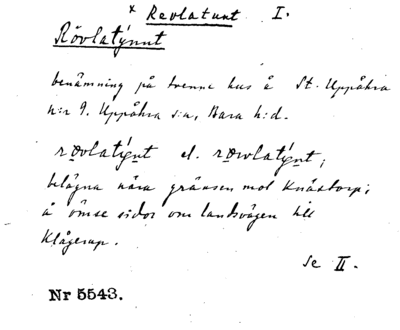 x Revlatunt I.
Rövlatýnnt
benämning på tvenne hus å St. Uppåkra
n:r 9. Uppåkra s:n, Bara h:d.
rovlatýnt el. rowlatýnt;
belägna nära gränsen mot Knästorp;
å ömse sidor om landsvägen till
Klågerup.
Se II.
Nr 5543.